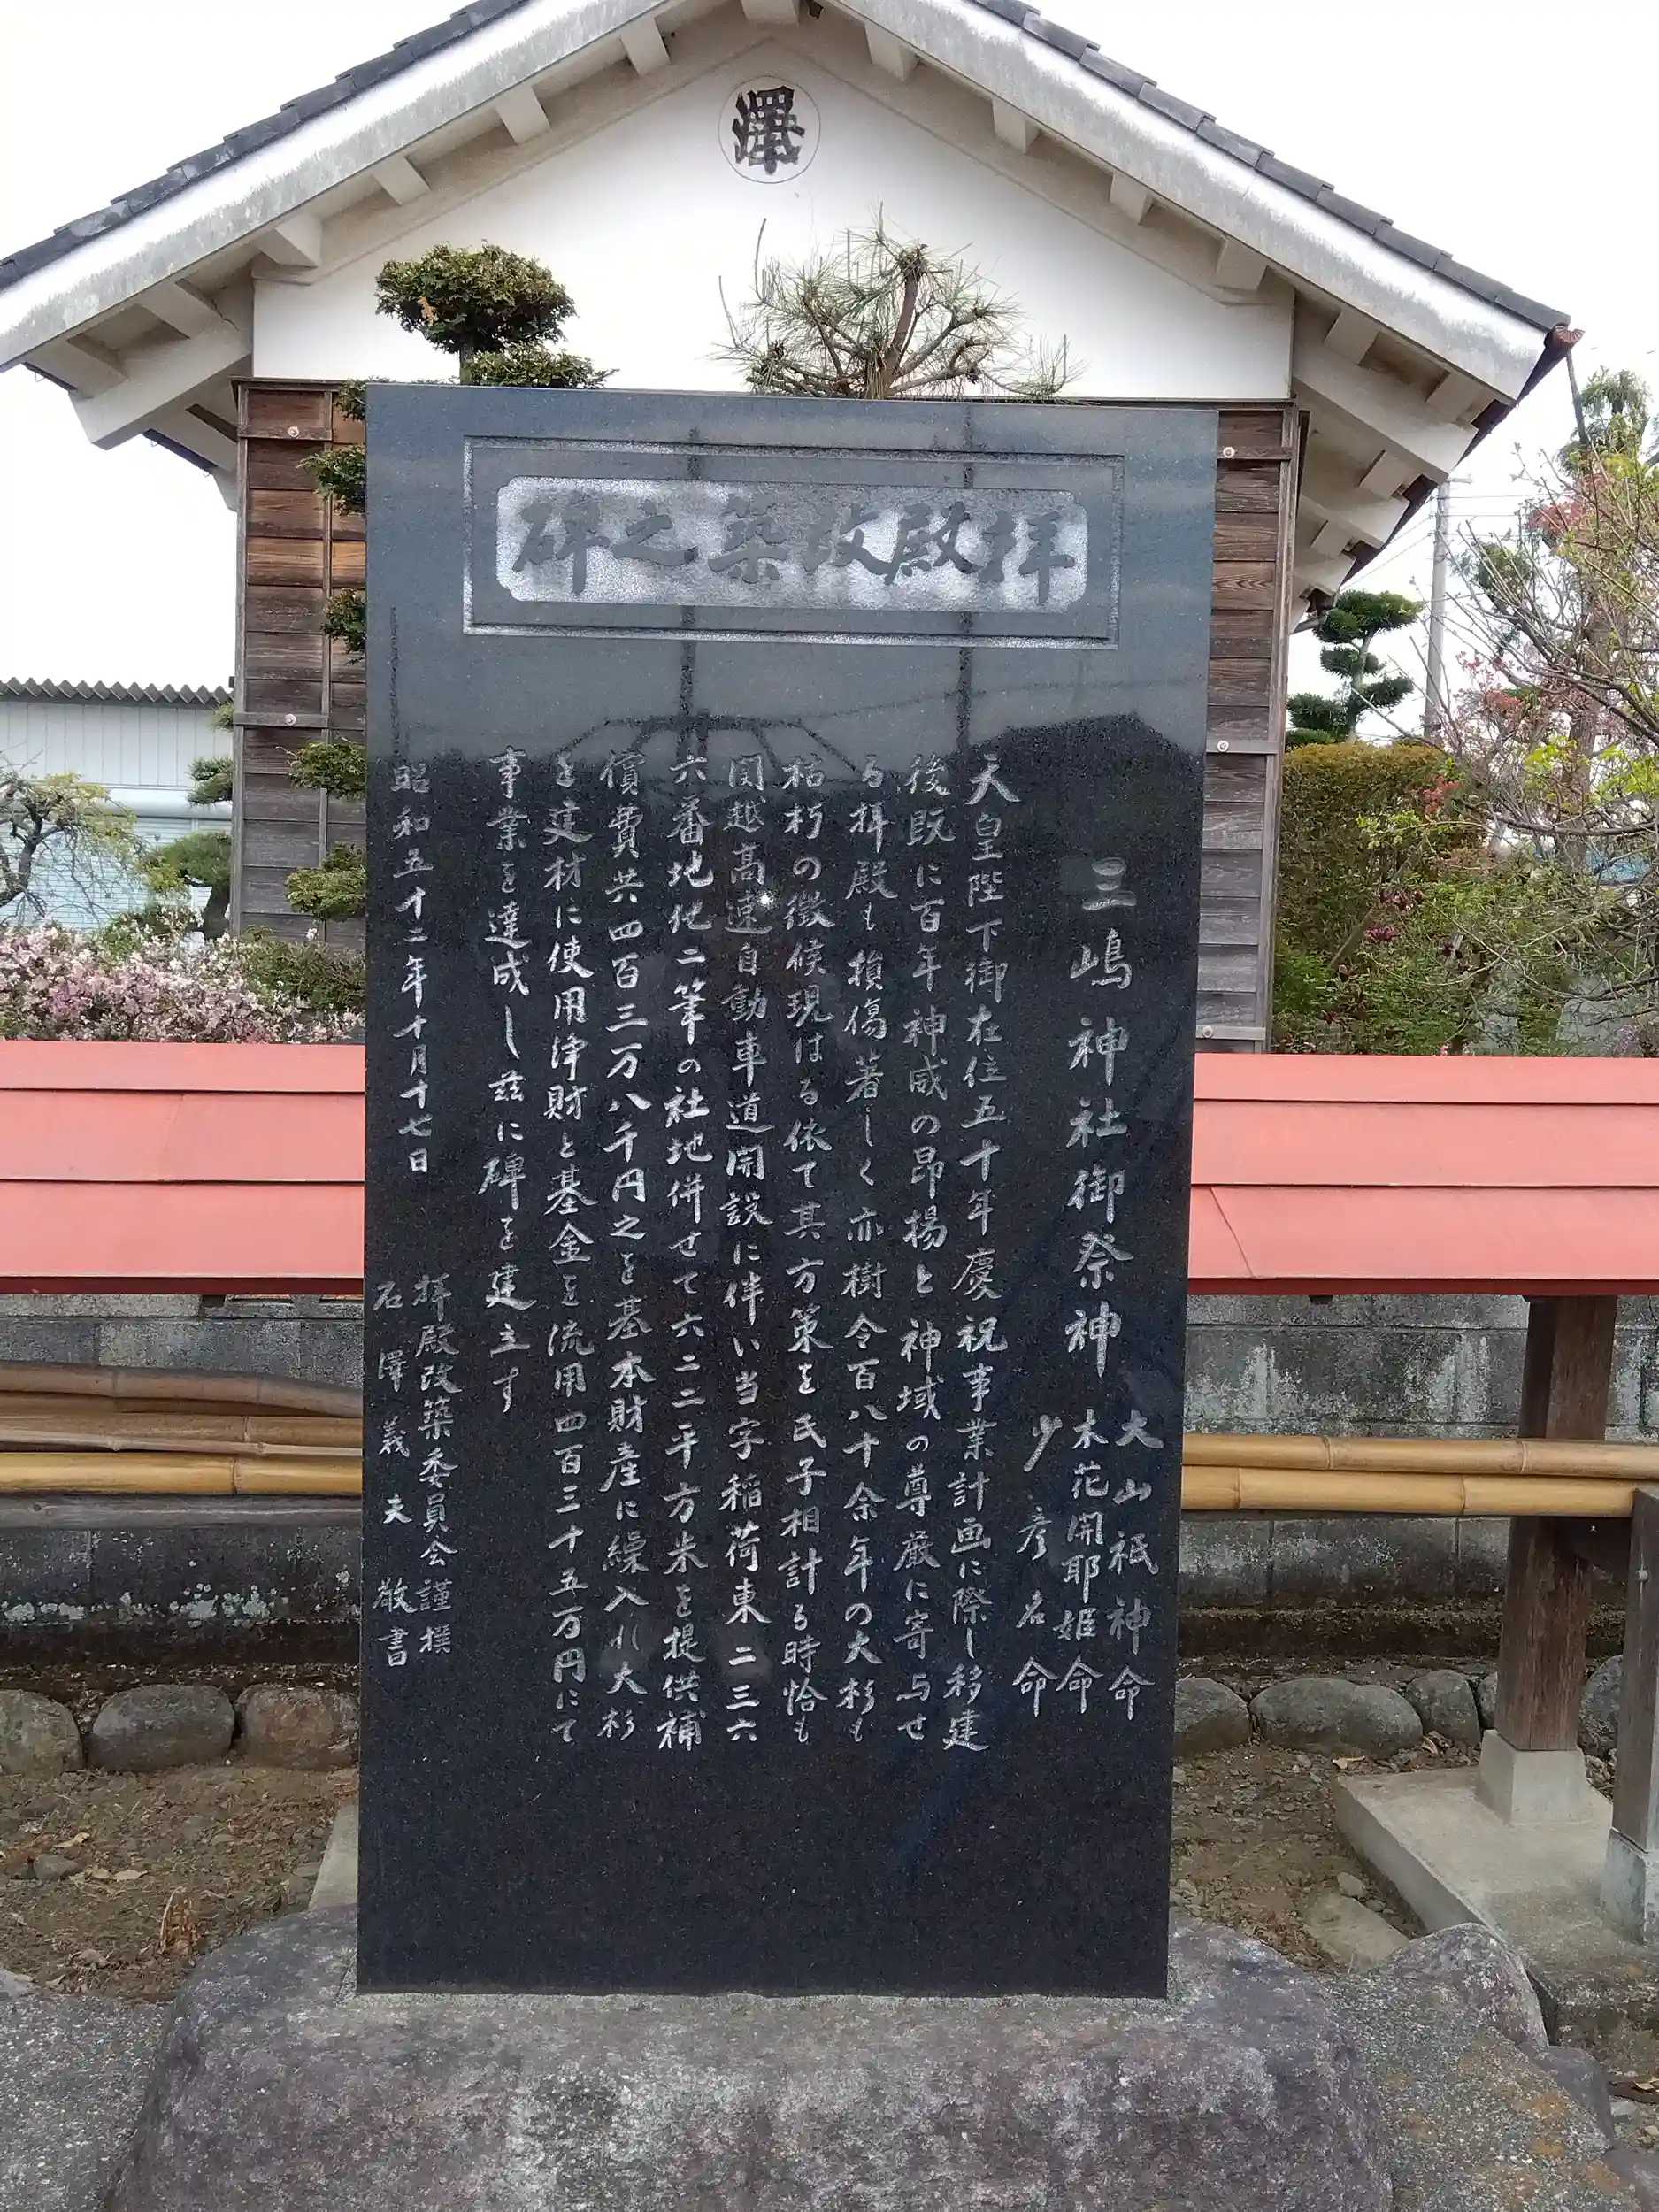 澤
拝殿改築之碑
三嶋神社御祭神
大山祇神命
木花開耶姫命
少彦名命
天皇陛下御在位五十年慶祝事業計画に際し移建
後既に百年神威の昂揚と神域の尊厳に寄与せ
る拝殿も損傷著しく亦樹令百八十余年の大杉も
枯朽の徴候現はる依て其方策を氏子相計る時恰も
関越高速自動車道開設に伴い当字稲荷東二三六
六番地他二筆の社地併せて六二二平方米を提供補
償費共四百三万八千円之を基本財産に繰入れ大杉
を建材に使用浄財と基金を流用四百三十五万円にて
事業を達成し茲に碑を建立す
昭和五十二年十月十七日
拝殿改築委員会謹撰
石澤義夫敬書